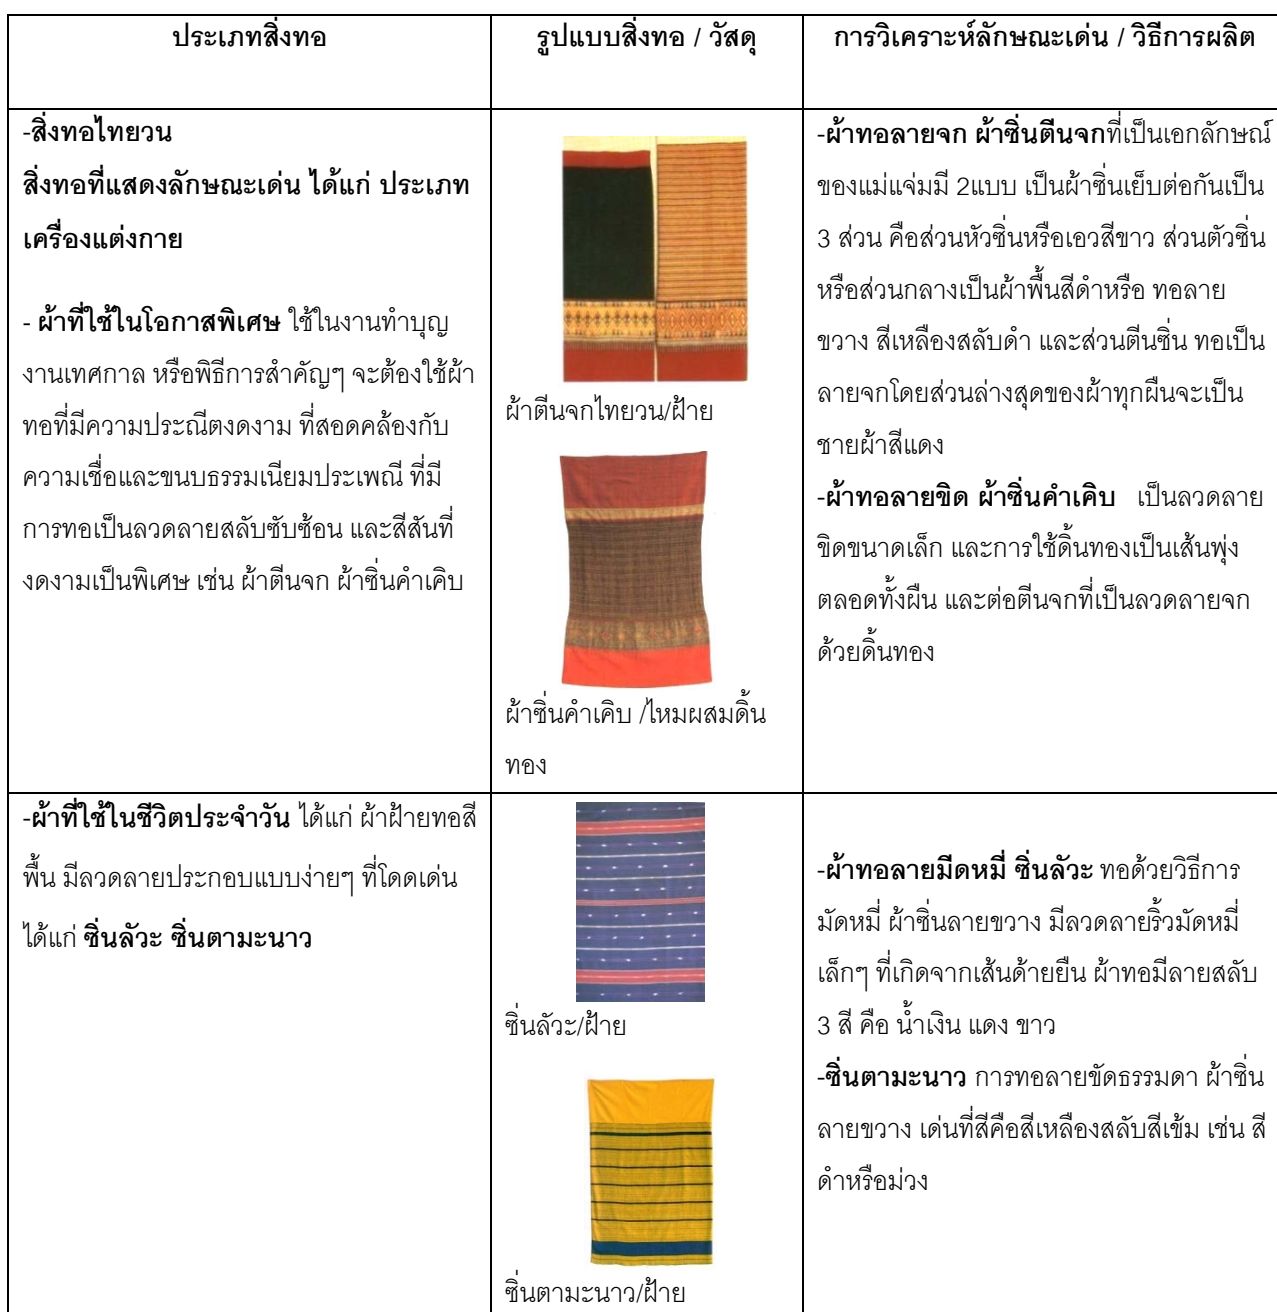 ประเภทสิ่งทอ
รูปแบบสิ่งทอ / วัสดุ
การวิเคราะห์ลักษณะเด่น / วิธีการผลิต
-สิ่งทอไทยวน
สิ่งทอที่แสดงลักษณะเด่น ได้แก่ ประเภท
เครื่องแต่งกาย
- ผ้าที่ใช้ในโอกาสพิเศษ ใช้ในงานทำบุญ
งานเทศกาล หรือพิธีการสำคัญๆ จะต้องใช้ผ้า
ทอที่มีความประณีตงดงาม ที่สอดคล้องกับ
ความเชื่อและขนบธรรมเนียมประเพณี ที่มี
การทอเป็นลวดลายสลับซับซ้อน และสีสันที่
งดงามเป็นพิเศษ เช่น ผ้าตีนจก ผ้าซิ่นคำเคิบ
ผ้าตีนจกไทยวน/ฝ้าย
ผ้าซิ่นคำเคิบ /ไหมผสมดิ้น
ทอง
-ผ้าทอลายจก ผ้าซิ่นตีนจกที่เป็นเอกลักษณ์
ของแม่แจ่มมี 2แบบ เป็นผ้าซิ่นเย็บต่อกันเป็น
3 ส่วน คือส่วนหัวซิ่นหรือเอวสีขาว ส่วนตัวซิ่น
หรือส่วนกลางเป็นผ้าพื้นสีดำหรือ ทอลาย
ขวาง สีเหลืองสลับดำ และส่วนตีนซิ่น ทอเป็น
ลายจกโดยส่วนล่างสุดของผ้าทุกผืนจะเป็น
ชายผ้าสีแดง
-ผ้าทอลายขิด ผ้าซิ่นคำเคิบ เป็นลวดลาย
ขิดขนาดเล็ก และการใช้ดิ้นทองเป็นเส้นพุ่ง
ตลอดทั้งผืน และต่อตีนจกที่เป็นลวดลายจก
ด้วยดิ้นทอง
-ผ้าที่ใช้ในชีวิตประจำวัน ได้แก่ ผ้าฝ้ายทอสี
พื้น มีลวดลายประกอบแบบง่ายๆ ที่โดดเด่น
ได้แก่ ซิ่นลัวะ ซิ่นตามะนาว
ซิ่นลัวะ/ฝ้าย
ซิ่นตามะนาว/ฝ้าย
-ผ้าทอลายมีดหมี่ ซิ่นลัวะ ทอด้วยวิธีการ
มัดหมี่ ผ้าซิ่นลายขวาง มีลวดลายริ้วมัดหมี่
เล็กๆ ที่เกิดจากเส้นด้ายยืน ผ้าทอมีลายสลับ
3 สี คือ น้ำเงิน แดง ขาว
-ซิ่นตามะนาว การทอลายขัดธรรมดา ผ้าซิ่น
ลายขวาง เด่นที่สีคือสีเหลืองสลับสีเข้ม เช่น สี
ดำหรือม่วง